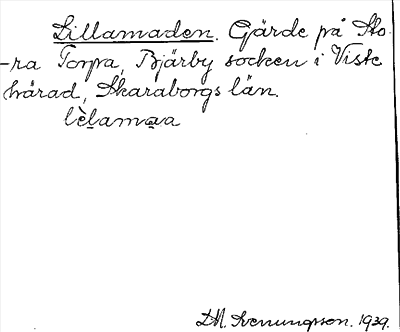 Lillamaden. Gärde på Sto-
-ra Torpa, Bjärby socken i Viste
härad, Skaraborgs län.
lèlamaa
D.M. Svenungsson. 1939.